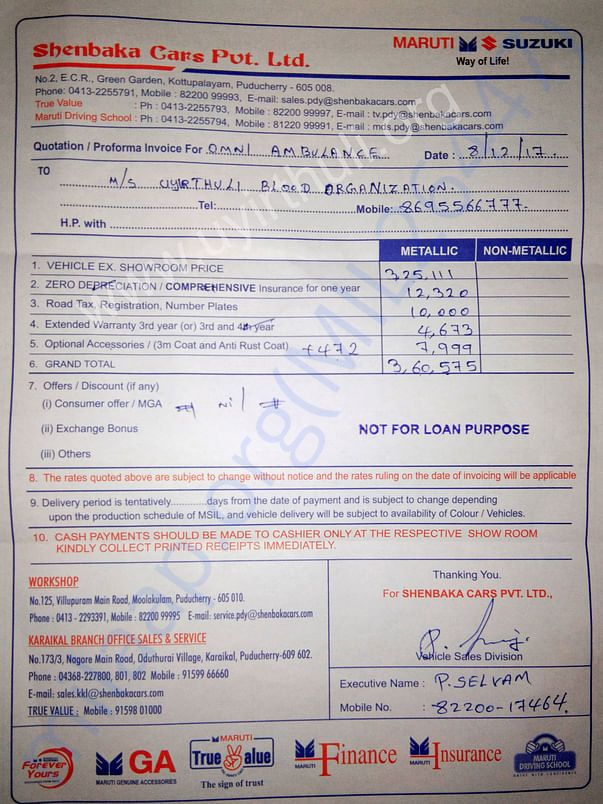 Shenbaka Cars Pvt. Ltd.
MARUTI SUZUKI
Way of Life!
No.2, E.C.R., Green Garden, Kottupalayam, Puducherry - 605 008.
Phone: 0413-2255791, Mobile : 82200 99993, E-mail: sales.pdy@shenbakacars.com
True Value : Ph : 0413-2255793, Mobile : 82200 99997, E-mail : tv.pdy@shenbakacars.com
Maruti Driving School : Ph : 0413-2255794, Mobile : 81220 99991, E-mail : mds.pdy@shenbakacars.com
Quotation / Proforma Invoice For OMNI AMBULANCE Date : 8/12/17.
TO
M/S UYIRTHULI BLOOD ORGANIZATION.
Tel: Mobile: 8695566777.
H.P. with
METALLIC NON-METALLIC
1. VEHICLE EX. SHOWROOM PRICE 325,111
2. ZERO DEPRECIATION / COMPREHENSIVE Insurance for one year 12,320
3. Road Tax, Registration, Number Plates 10,000
4. Extended Warranty 3rd year (or) 3rd and 4th year 4,673
5. Optional Accessories / (3m Coat and Anti Rust Coat) +472 7,999
6. GRAND TOTAL 3,60,575
7. Offers / Discount (if any)
(i) Consumer offer / MGA nil
(ii) Exchange Bonus
NOT FOR LOAN PURPOSE
(iii) Others
8. The rates quoted above are subject to change without notice and the rates ruling on the date of invoicing will be applicable
9. Delivery period is tentatively.............days from the date of payment and is subject to change depending
upon the production schedule of MSIL, and vehicle delivery will be subject to availability of Colour / Vehicles.
10. CASH PAYMENTS SHOULD BE MADE TO CASHIER ONLY AT THE RESPECTIVE SHOW ROOM
KINDLY COLLECT PRINTED RECEIPTS IMMEDIATELY.
WORKSHOP
No.125, Villupuram Main Road, Moolakulam, Puducherry - 605 010.
Phone : 0413 - 2293391, Mobile : 82200 99995 E-mail: service.pdy@shenbakacars.com
KARAIKAL BRANCH OFFICE SALES & SERVICE
No.173/3, Nagore Main Road, Oduthurai Village, Karaikal, Puducherry-609 602.
Phone : 04368-227800, 801, 802 Mobile : 91599 66660
E-mail: sales.kkl@shenbakacars.com
TRUE VALUE : Mobile : 91598 01000
Thanking You.
For SHENBAKA CARS PVT. LTD.,
Vehicle Sales Division
Executive Name : P. SELVAM
Mobile No. : 82200-17464.
Forever Yours
MARUTI GA
MARUTI GENUINE ACCESSORIES
MARUTI True Value
The sign of trust
MARUTI Finance
MARUTI Insurance
MARUTI DRIVING SCHOOL
www.uyirthuli.org